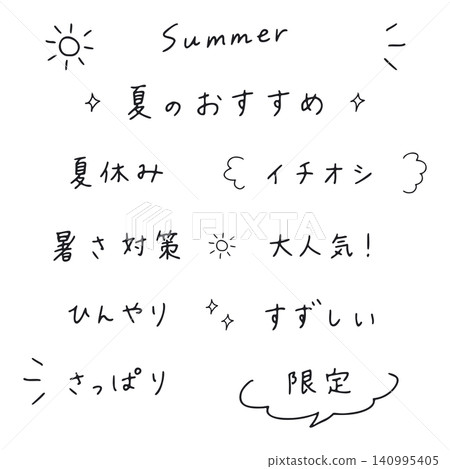 Summer
夏のおすすめ
夏休み イチオシ
暑さ対策 大人気!
ひんやり すずしい
さっぱり 限定
PIXTA
pixta.jp - 140995405